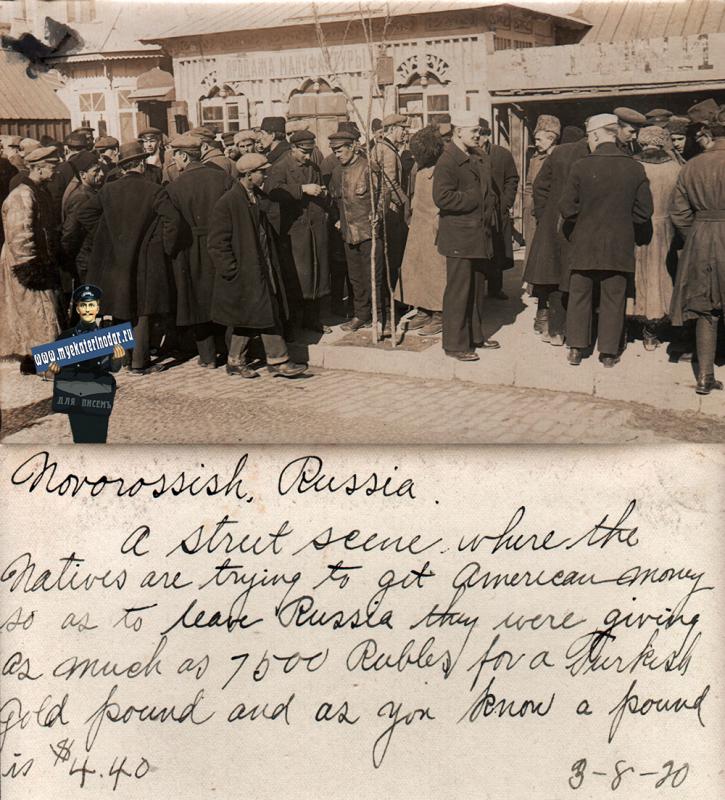 ПРОДАЖА МАНУФАКТУРЫ
www.myekaterinodar.ru
ДЛЯ ПИСЕМЪ
Novorossish, Russia.
A street scene where the
Natives are trying to get American money
so as to leave Russia they were giving
as much as 7500 Rubles for a Turkish
gold pound and as you know a pound
is $4.40
3-8-20